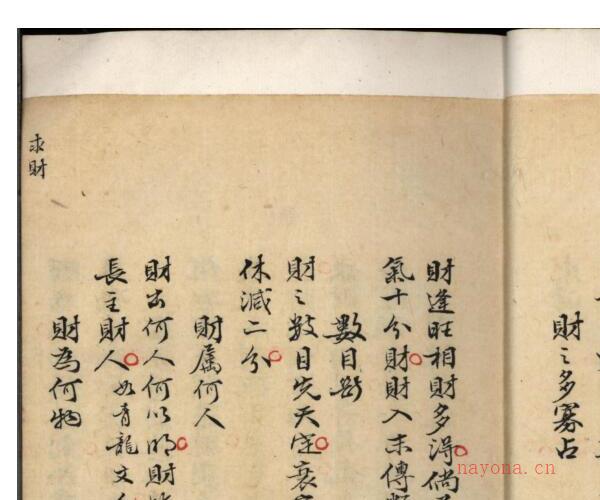 財之多寡占
財逢旺相財多得倘
氣十分財財入末傳
數目斷
財之數目先天定衰
休減二分
財屬何人
財出何人何以明財
長主財人如青龍文
財為何物
求財
nayona.cn